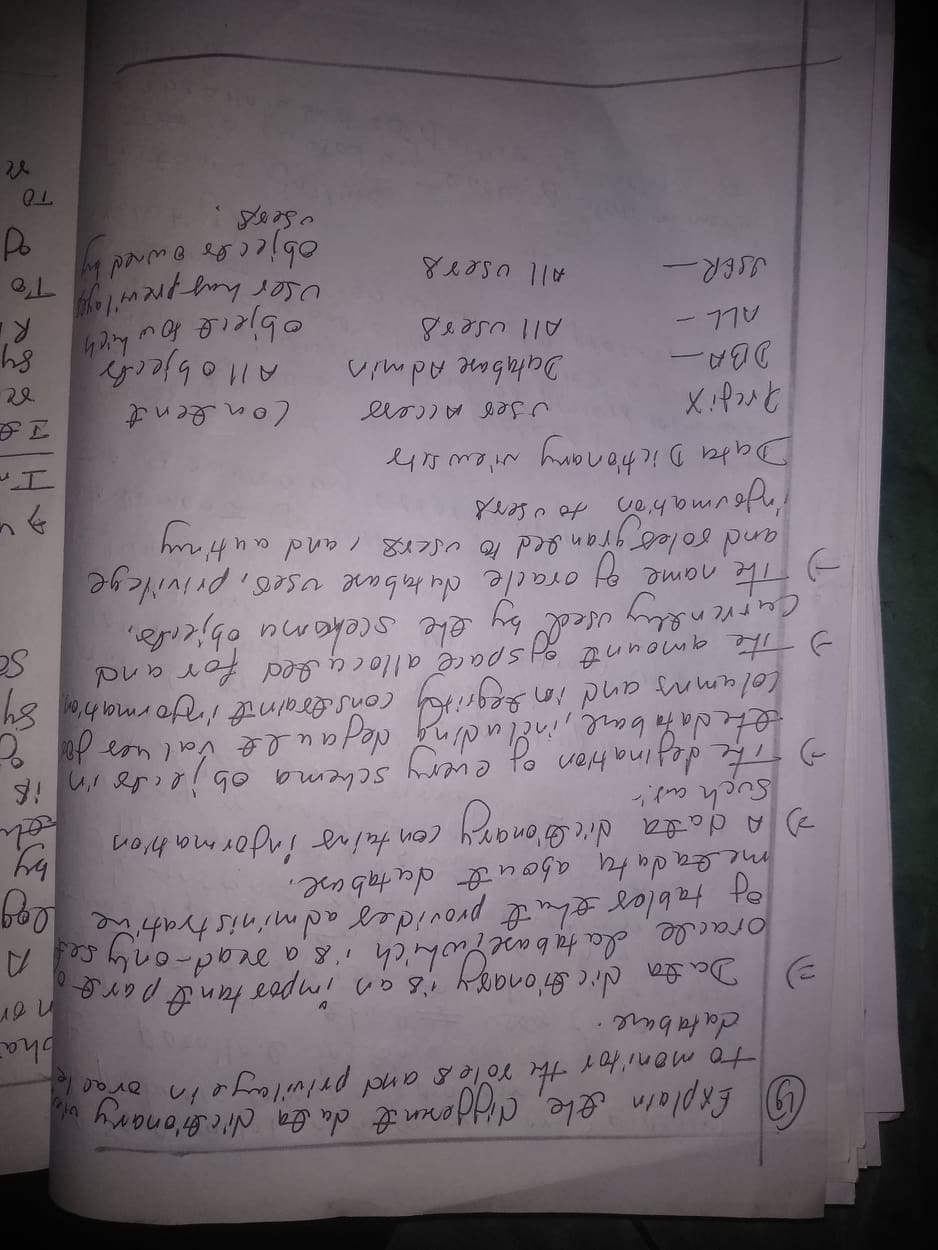 (19) Explain the different data dictionary
to monitor the roles and privilage in oracle
database.
=) Data dictionary is an important part
oracle database, which is a read-only set
of tables that provides administrative
metadata about database.
=) A data dictionary contains information
such as:-
-) The defination of every schema objects in
the database, including default values for
columns and integrity constraint information
-) The amount of space allocated for and
currently used by the scehama objects.
-) The name of oracle database users, privilege
and roles granted to users, and
information to users
Data Dictionary view sets
Prefix User Access Content
DBA_ Database Admin All objects
ALL_ All users object to which
user has previlages
USER_ All users objects owned by
users.
A
by
is
To
TO